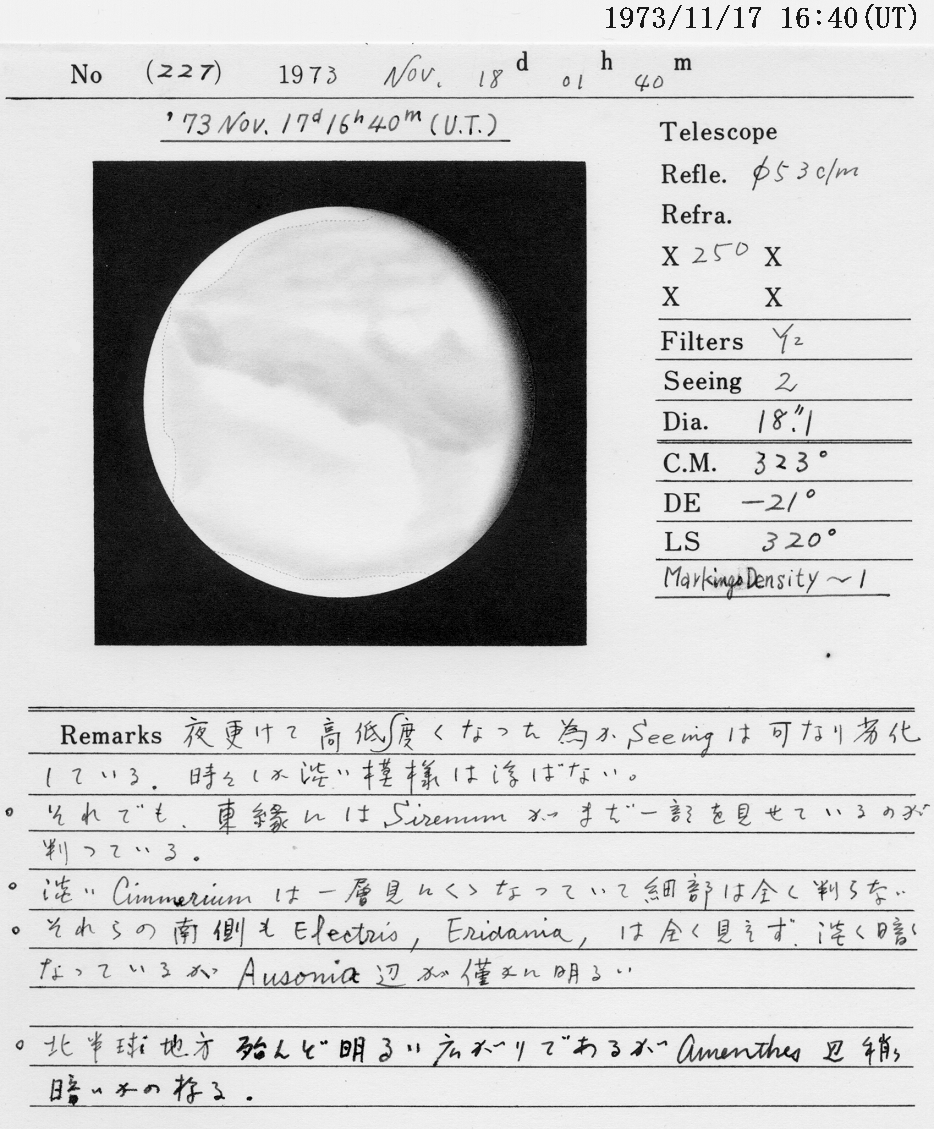 1973/11/17 16:40(UT)
No (227) 1973 Nov. 18 d 01 h 40 m
'73 Nov. 17d 16h 40m (U.T.)
Telescope
Refle. φ53 c/m
Refra.
X 250 X
X X
Filters Y2
Seeing 2
Dia. 18."1
C.M. 323°
DE -21°
LS 320°
Markings Density ~ 1
Remarks 夜更けて高度低くなった為か Seeing は可なり劣化
している. 時々しか淡い模様は浮ばない。
。それでも、東縁には Sirenum がまだ一部を見せているのが
判っている。
。淡い Cimmerium は一層見にくゝなっていて細部は全く判らない
。それらの南側も Electris, Eridania, は全く見えず、淡く暗く
なっているが Ausonia 辺が僅かに明るい
。北半球地方 殆んど明るい広がりであるが Amenthes 辺 稍々
暗いものが存る.